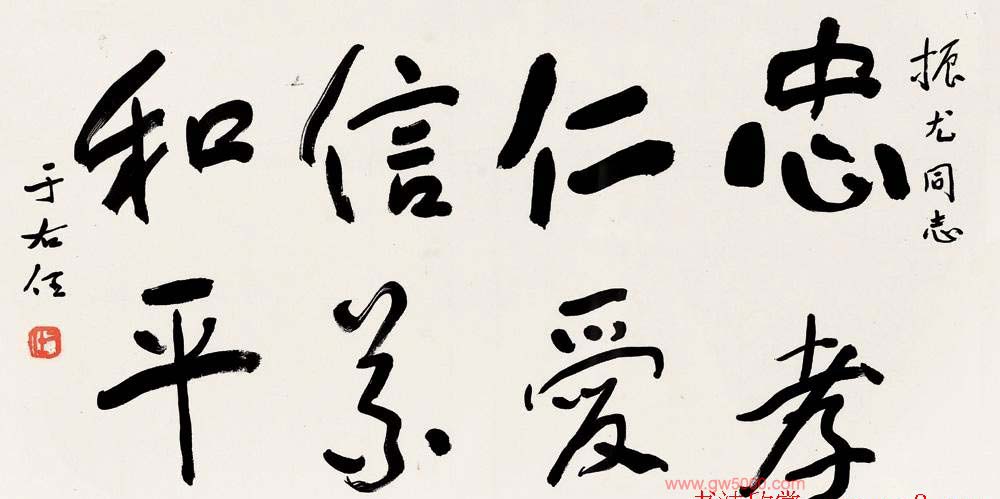 振尤同志
忠孝
仁爱
信义
和平
于右任
www.gw5000.com